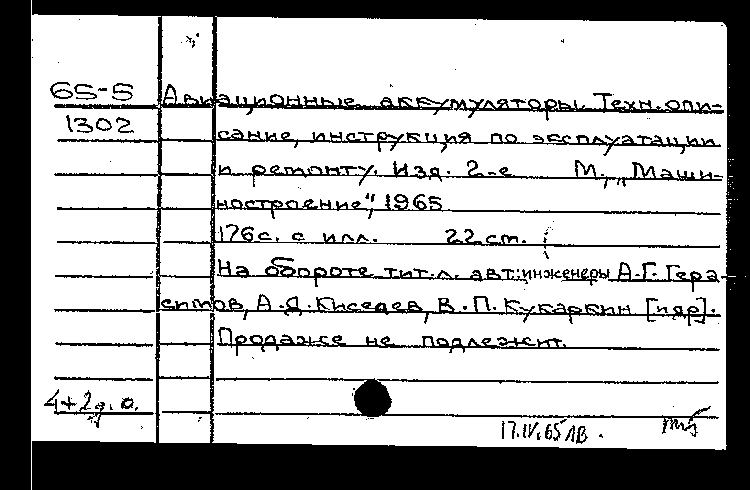 65-5
1302
Авиационные аккумуляторы. Техн. опи-
сание, инструкция по эксплуатации
и ремонту. Изд. 2-е М., „Маши-
ностроение", 1965
176с. с илл. 22 см.
На обороте тит. л. авт.: инженеры А.Г. Гера-
симов, А.Д. Киселев, В.П. Кукаркин [и др].
Продаже не подлежит.
4+2д. о.
17.IV.65 ЛВ.